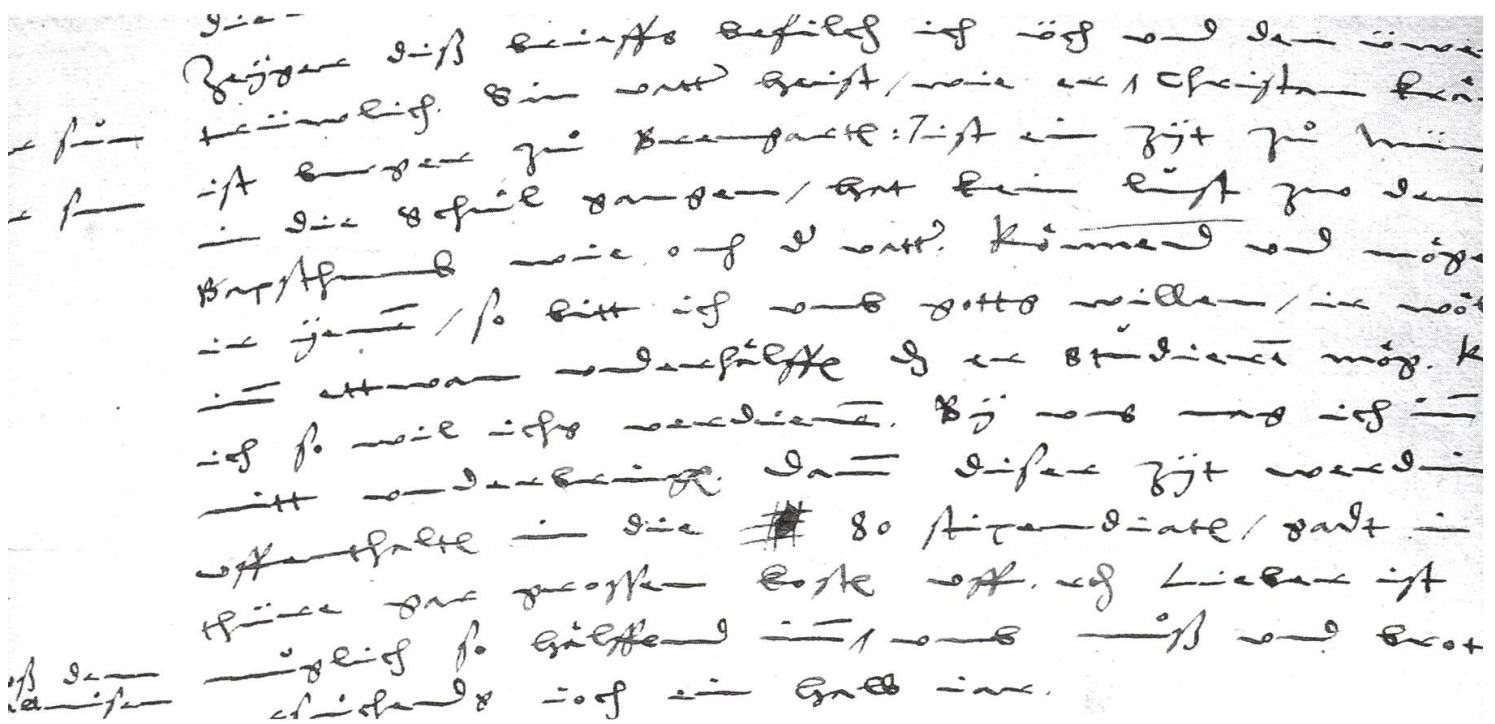 die
Zeÿger diß brieffs befilch ich üch und den üwe
trüwlich. Sin vatt' heist / wie er / Christan Krå
ist burger zů Bremgartē: / ist ein zÿt zů Mün
in die schůl gangen / hat kein lust zuo dem
Bapsthumb wie och d' vatt'. Könnend und möge
ir ÿenē / so bitt ich umb gotts willen / ir wöl
in̄ ettwan underhälffē dz er studierē mög. K
ich so wil ichs verdienē. Bÿ uns mag ich in̄
nitt underbringē. Dan̄ diser zÿt werdin
uffenthaltē in die 80 stipendiatē / gadt in
thüre gar grossen kostē uff. Ach Lieber ist
muglich so hälffend in̄ / umb můß und brot
noch ein halb iar.